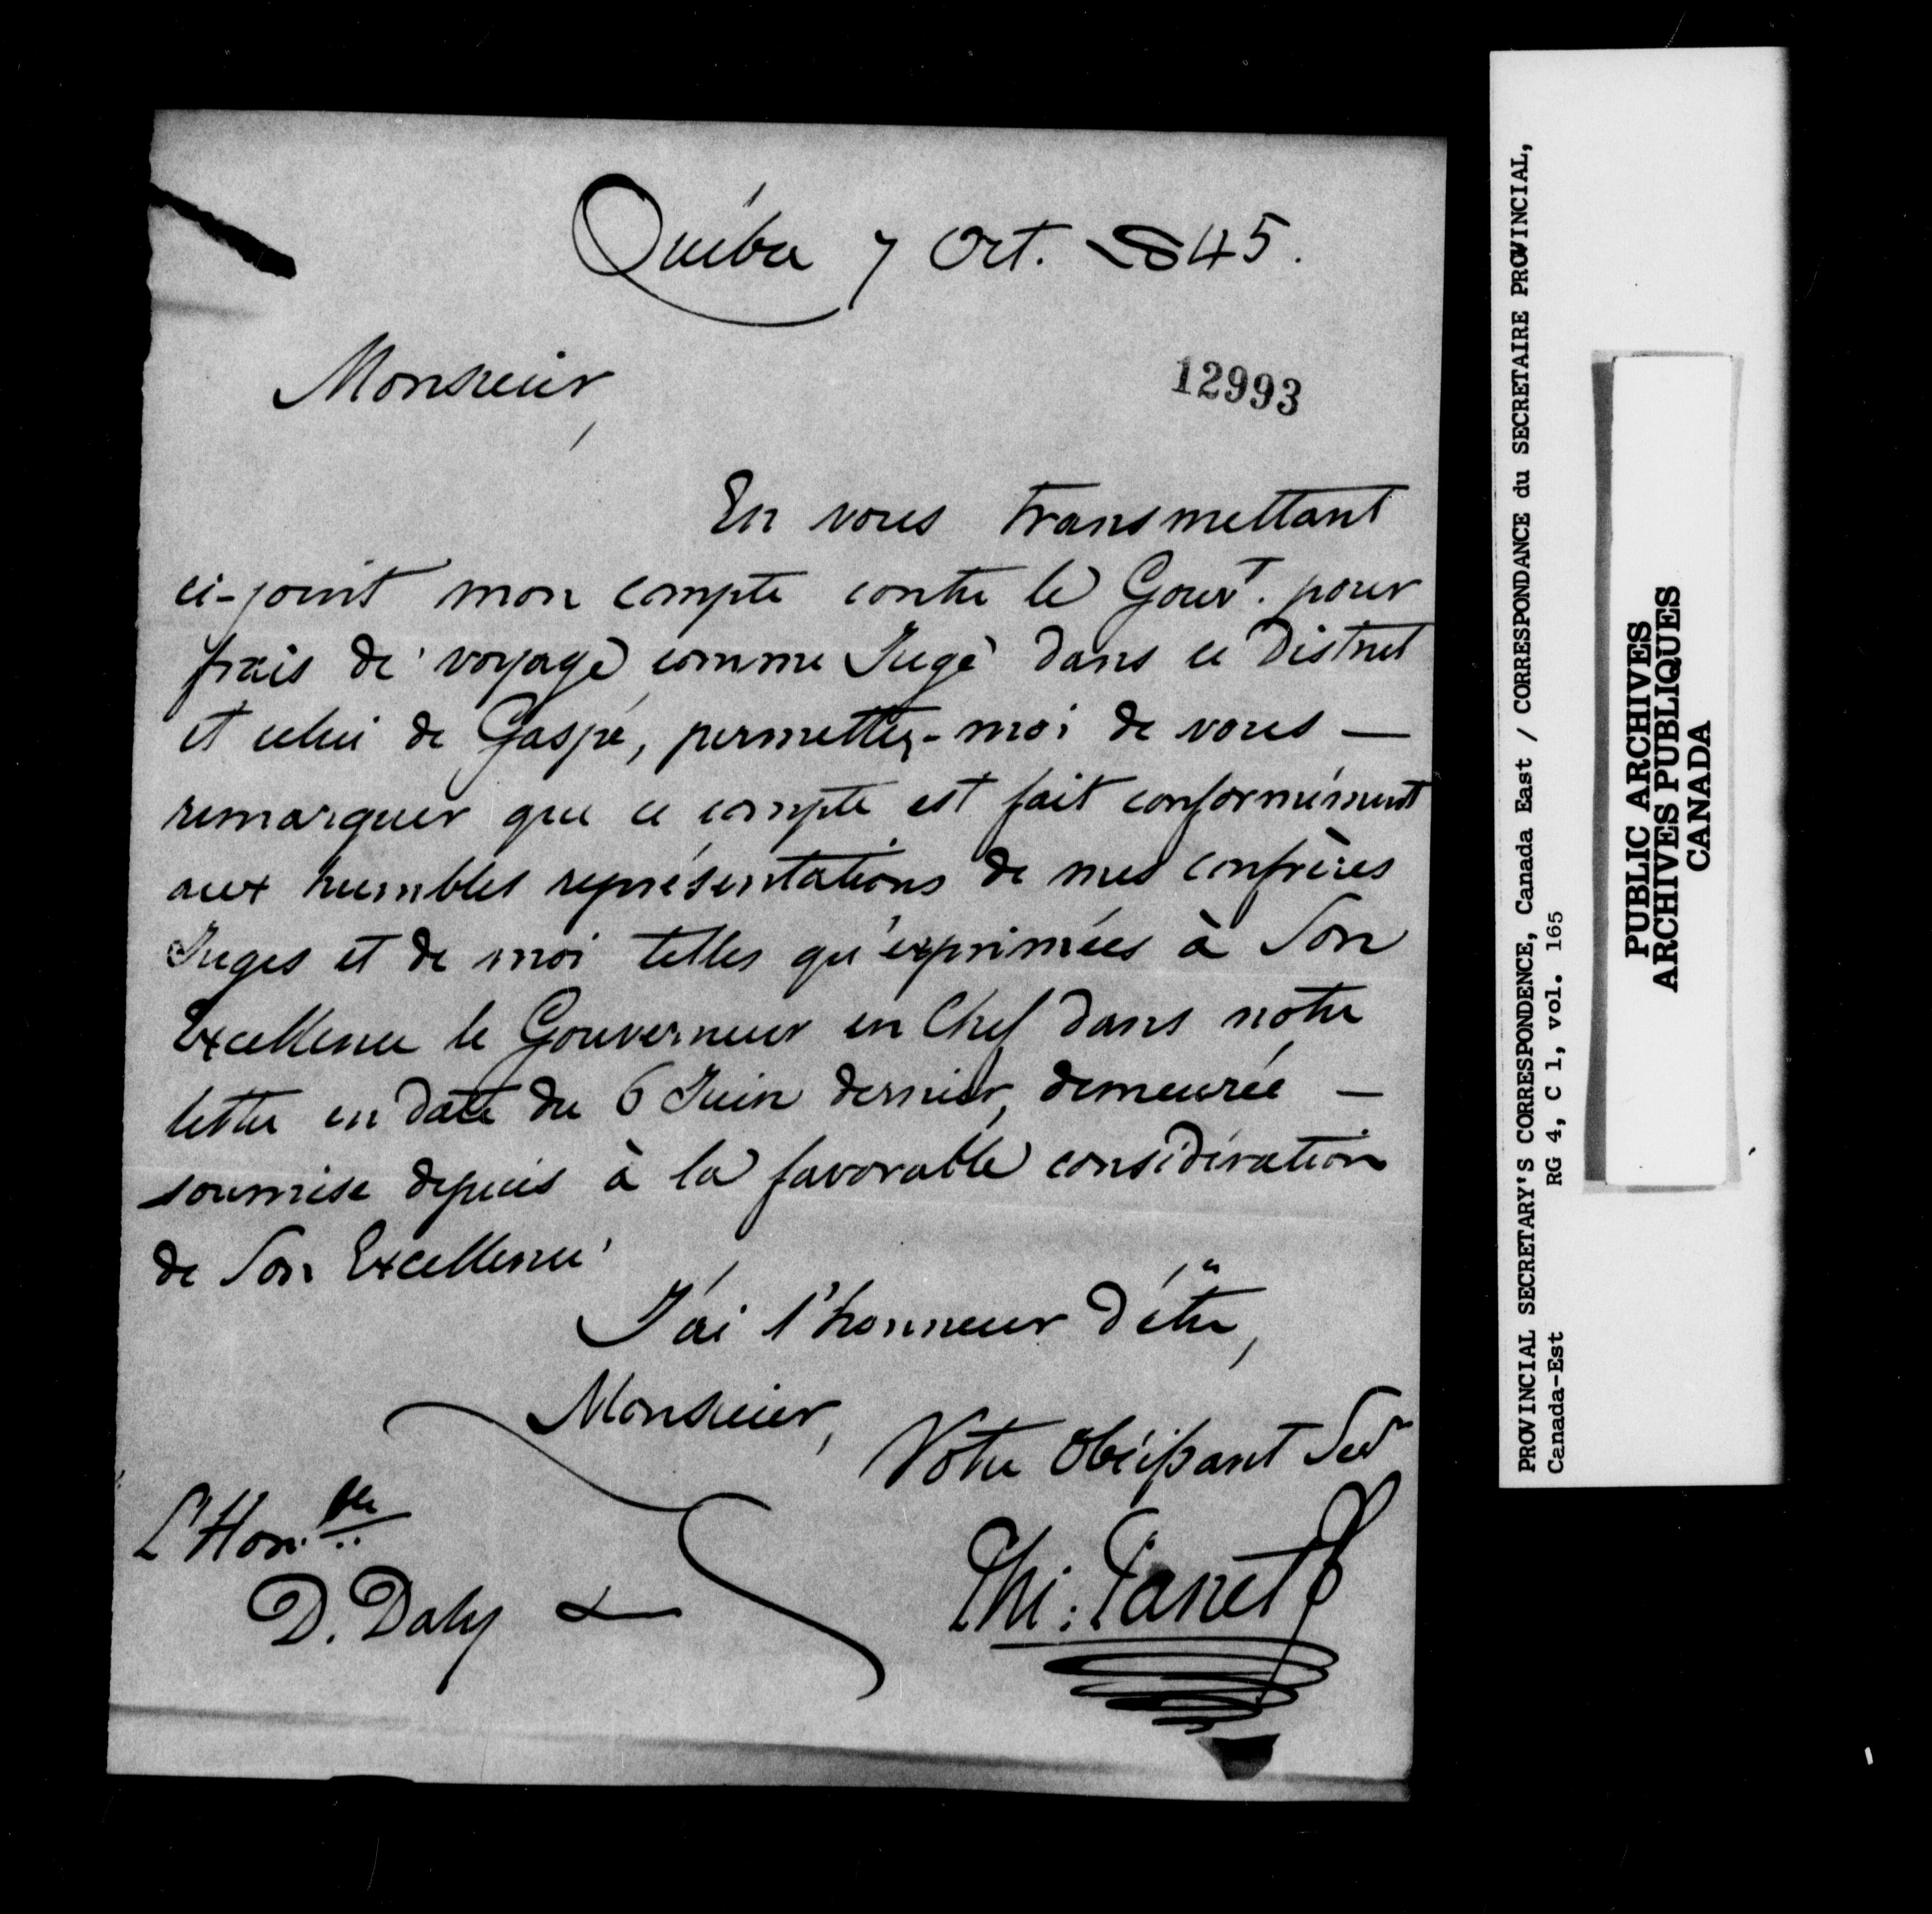 Québec 7 Oct. 1845.
Monsieur,
12993
En vous transmettant
ci-joint mon compte contre le Gouvt. pour
frais de voyage comme Juge dans ce District
et celui de Gaspé, permettez-moi de vous —
remarquer que ce compte est fait conformément
aux humbles représentations de mes confrères
Juges et de moi telles qu'exprimées à Son
Excellence le Gouverneur en Chef dans notre
lettre en date du 6 Juin dernier, demeurée —
soumise depuis à la favorable considération
de Son Excellence
J'ai l'honneur d'être,
Monsieur,
Votre Obéissant Servr
L'Honble
D. Daly
Phi: Panet
PROVINCIAL SECRETARY'S CORRESPONDENCE, Canada East / CORRESPONDANCE du SECRETAIRE PROVINCIAL,
Canada-Est RG 4, C 1, vol. 165
PUBLIC ARCHIVES
ARCHIVES PUBLIQUES
CANADA